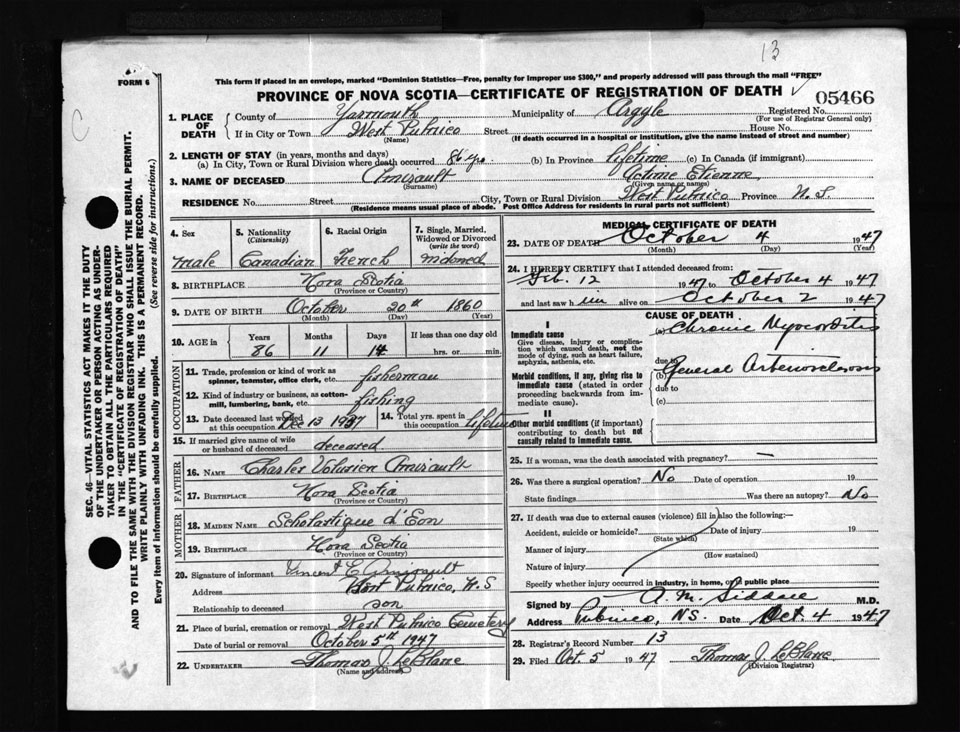 13
FORM 6
This form if placed in an envelope, marked "Dominion Statistics—Free, penalty for improper use $300," and properly addressed will pass through the mail "FREE"
PROVINCE OF NOVA SCOTIA—CERTIFICATE OF REGISTRATION OF DEATH
05466
C
SEC. 46—VITAL STATISTICS ACT MAKES IT THE DUTY
OF THE UNDERTAKER OR PERSON ACTING AS UNDER-
TAKER TO OBTAIN ALL THE PARTICULARS REQUIRED
IN THE "CERTIFICATE OF REGISTRATION OF DEATH"
AND TO FILE THE SAME WITH THE DIVISION REGISTRAR WHO SHALL ISSUE THE BURIAL PERMIT.
WRITE PLAINLY WITH UNFADING INK. THIS IS A PERMANENT RECORD.
Every item of information should be carefully supplied. (See reverse side for instructions.)
1. PLACE OF DEATH
County of Yarmouth Municipality of Argyle Registered No.
(For use of Registrar General only)
If in City or Town West Pubnico Street House No.
(Name) (If death occurred in a hospital or institution, give the name instead of street and number)
2. LENGTH OF STAY (in years, months and days)
(a) In City, Town or Rural Division where death occurred 86 yrs. (b) In Province lifetime (c) In Canada (if immigrant)
3. NAME OF DECEASED Amirault
(Surname) (Given name or names)
Etienne
RESIDENCE No. Street City, Town or Rural Division West Pubnico Province N.S.
(Residence means usual place of abode. Post Office Address for residents in rural parts not sufficient)
4. Sex
male
5. Nationality
(Citizenship)
Canadian
6. Racial Origin
French
7. Single, Married, Widowed or Divorced
(write the word)
widowed
8. BIRTHPLACE Nova Scotia
(Province or Country)
9. DATE OF BIRTH October 20th 1860
(Month) (Day) (Year)
10. AGE in
Years Months Days If less than one day old
86 11 14 hrs. or min.
OCCUPATION
11. Trade, profession or kind of work as
spinner, teamster, office clerk, etc. fisherman
12. Kind of industry or business, as cotton-
mill, lumbering, bank, etc. fishing
13. Date deceased last worked
at this occupation Dec 13 1937
14. Total yrs. spent in
this occupation lifetime
15. If married give name of wife
or husband of deceased deceased
FATHER
16. NAME Charles Volusien Amirault
17. BIRTHPLACE Nova Scotia
(Province or Country)
MOTHER
18. MAIDEN NAME Scholastique d'Eon
19. BIRTHPLACE Nova Scotia
(Province or Country)
20. Signature of informant Vincent E. Amirault
Address West Pubnico, N.S
Relationship to deceased son
21. Place of burial, cremation or removal West Pubnico Cemetery
Date of burial or removal October 5th 1947
22. UNDERTAKER Thomas J. LeBlanc
(Name and address)
MEDICAL CERTIFICATE OF DEATH
23. DATE OF DEATH October 4 1947
(Month) (Day) (Year)
24. I HEREBY CERTIFY that I attended deceased from:
Feb. 12 1947 to October 4 1947
and last saw him alive on October 2 1947
CAUSE OF DEATH
I
Immediate cause
Give disease, injury or complica-
tion which caused death, not the
mode of dying, such as heart failure,
asphyxia, asthenia, etc.
(a) Chronic Myocarditis
due to
Morbid conditions, if any, giving rise to
immediate cause (stated in order
proceeding backwards from im-
mediate cause).
(b) General Arteriosclerosis
due to
(c)
II
Other morbid conditions (if important)
contributing to death but not
causally related to immediate cause.
25. If a woman, was the death associated with pregnancy? —
26. Was there a surgical operation? No Date of operation 19
State findings Was there an autopsy? No
27. If death was due to external causes (violence) fill in also the following:—
Accident, suicide or homicide? Date of injury 19
(State which)
Manner of injury
(How sustained)
Nature of injury
Specify whether injury occurred in industry, in home, or in public place
Signed by A. M. Siddall M.D.
Address Pubnico, N.S. Date Oct. 4 1947
28. Registrar's Record Number 13
29. Filed Oct. 5 1947 Thomas J. LeBlanc
(Division Registrar)